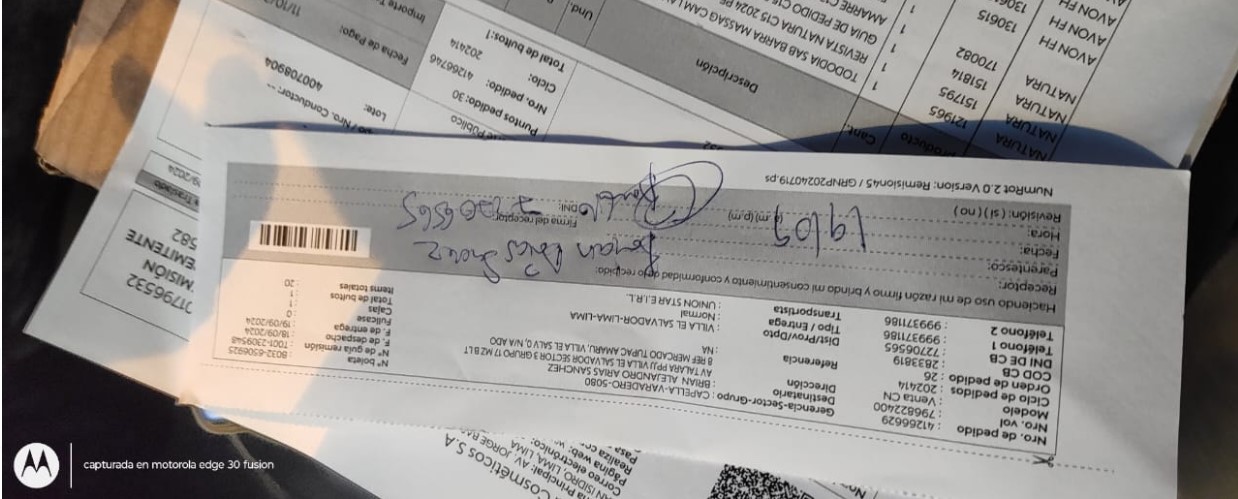 Nro. de pedido : 41266629
Nro. vol : 7968222400
Modelo : Venta CN
Ciclo de pedidos : 202414
Orden de pedido : 26
COD CB : 2833819
DNI DE CB : 77206565
Teléfono 1 : 999371186
Teléfono 2 : 999371186
Gerencia-Sector-Grupo : CAPELLA-VARADERO-5080
Destinatario : BRIAN ALEJANDRO ARIAS SANCHEZ
Dirección : AV TALARA PPJJ VILLA EL SALVADOR SECTOR 3 GRUPO 17 MZ B LT
8 REF MERCADO TUPAC AMARU, VILLA EL SALVO, N/A ADO
Referencia : NA
Distr/Prov/Dpto : VILLA EL SALVADOR-LIMA-LIMA
Tipo / Entrega : Normal
Transportista : UNION STAR E.I.R.L.
N° boleta : 8032-6506925
N° de guía remisión : T001-2309548
F. de despacho : 18/09/2024
F. de entrega : 19/09/2024
Fullcase : 0
Cajas : 1
Total de bultos : 1
Items totales : 20
Haciendo uso de mi razón firmo y brindo mi consentimiento y conformidad de lo recibido:
Receptor:
Parentesco:
Fecha: 19/09
Hora: (a.m) (p.m)
Revisión: ( si ) ( no )
Firma del receptor
DNI: 77206565
NumRot 2.0 Version: Remision45 / GRNP20240719.ps
Lote: 400708904
Fecha de Pago: 11/10/
Importe T
Puntos pedido: 30
Nro. pedido: 41266746
Ciclo: 202414
Total de bultos: 1
producto Cant. Descripción Und.
NATURA 121965 1 TODODIA SAB BARRA MASSAG CAM
NATURA 151795 1 REVISTA NATURA C15 2024 PE
NATURA 151814 1 GUIA DE PEDIDO C15
NATURA 170082 1 AMARRE
AVON FH 130615
AVON FH
AVON FH
01796532
MISIÓN
EMITENTE
582
Cosméticos S.A
Correo electrónico:
Página web:
capturada en motorola edge 30 fusion